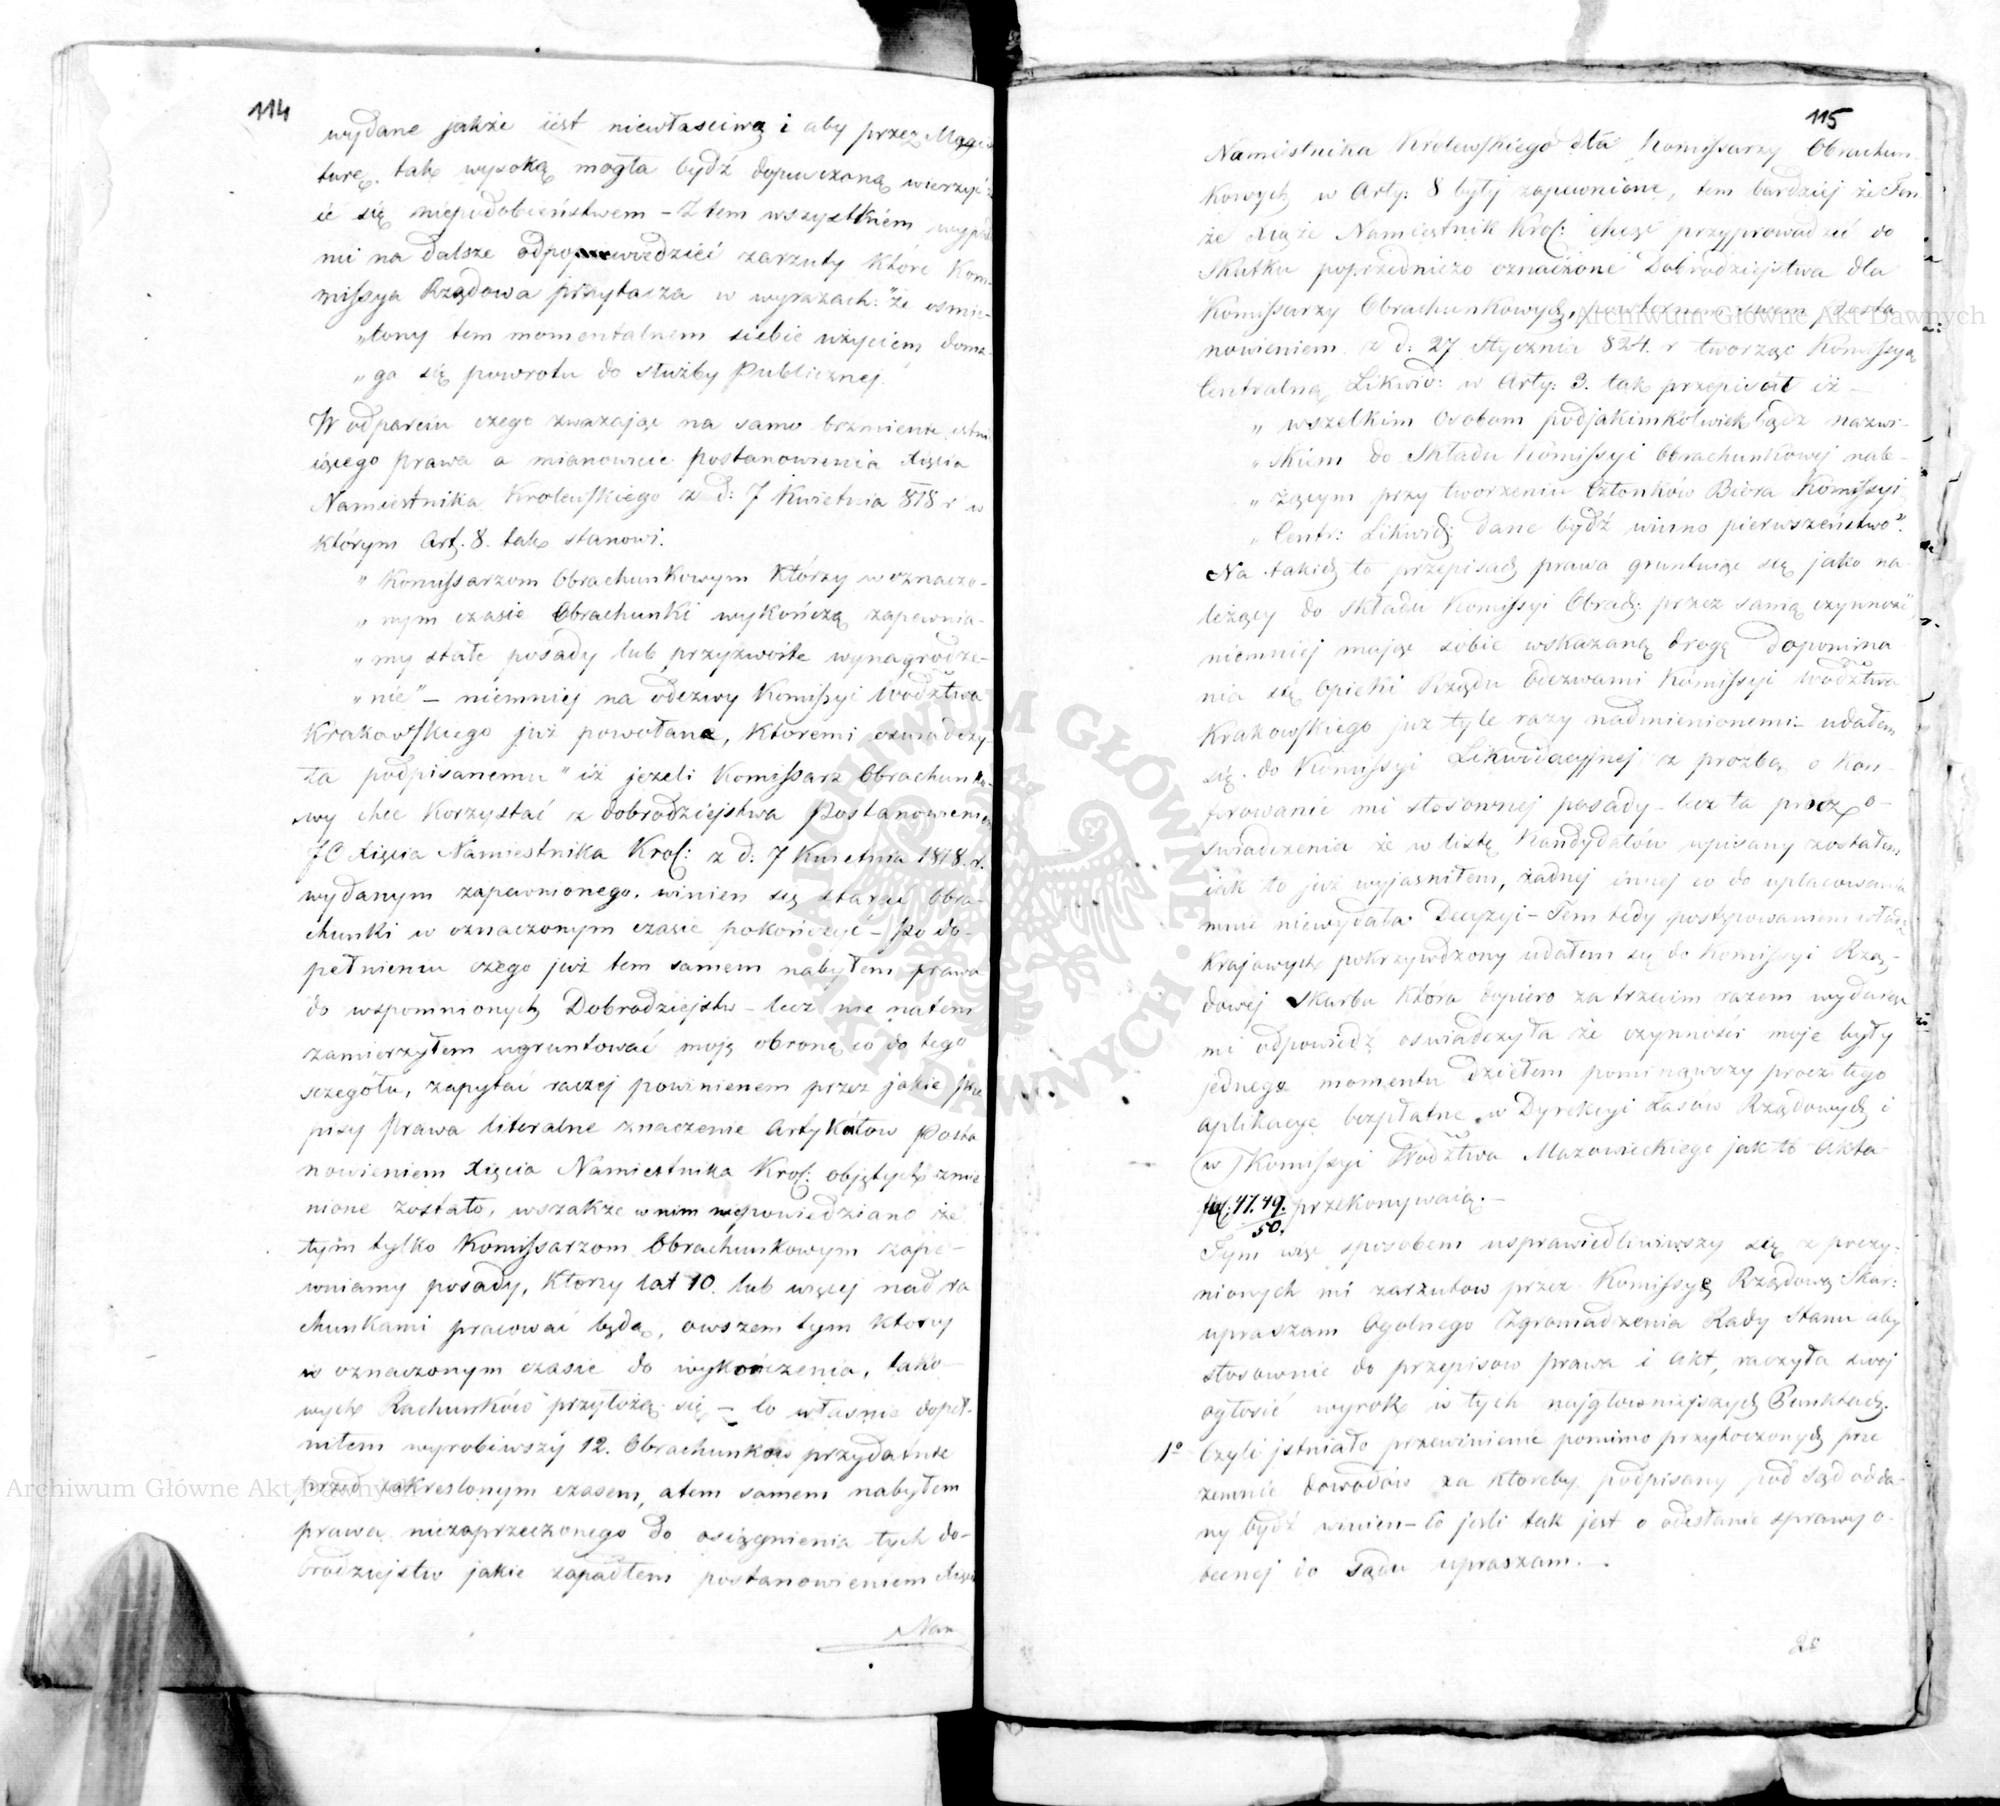 114
wydane jakże iest niewłasciwą i aby przez Magis
turę tak wysoką mogła bydź dopuszczoną wierzyć
ić się niepodobieństwem – Z tem wszystkiem
mi na dalsze odpowiedzieć zarzuty które Kom-
missya Rządowa przytacza w wyrazach: "że osmie-
„lony tem momentalnem siebie użyciem doma-
„ga się powrotu do służby Publicznej.
W odparciu czego zważając na samo brzmienie istni
iącego prawa a mianowicie postanowienia Xięcia
Namiestnika Krolewskiego z d: 7 Kwietnia 818 r w
którym Art. 8. tak stanowi.
„ Komissarzom Obrachunkowym którzy w oznaczo-
„ nym czasie Obrachunki wykończą zapewnia-
„ my stałe posady lub przyzwoite wynagrodze-
„ nie" – niemniej na odezwy Komissyi Wodztwa
Krakowskiego już powołane, któremi oswiadczy-
ła podpisanemu "iż jezeli Komissarz Obrachunko-
wy chce korzystać z dobrodziejstwa Postanowieniem
JO Xięcia Namiestnika Krol: z d: 7 Kwietnia 1818. r.
wydanym zapewnionego. winien się starać Obra-
chunki w oznaczonym czasie pokończyć – Po do-
pełnieniu czego już tem samem nabyłem prawa
do wspomnionych Dobrodziejstw – lecz nie na tem
zamierzyłem ugruntować moją obronę co do tego
szczegółu, zapytać raczej powinienem przez jakie prze
pisy Prawa literalne znaczenie Artykułow Posta
nowieniem Xięcia Namiestnika Krol: objętych zmie
nione zostało, wszakże w nim niepowiedziano że
tym tylko Komissarzom Obrachunkowym zape-
wniamy posady, ktorzy lat 10. lub więcej nad ra
chunkami pracować będą, owszem tym ktorzy
w oznaczonym czasie do wykończenia, tako-
wych Rachunków przyłożą się – to własnie dopeł-
niłem wyrobiwszy 12. Obrachunkow przydatnie
przed zakreslonym czasem, a tem samem nabyłem
prawa niezaprzeczonego do osiągnienia tych do-
brodziejstw jakie zapadłem postanowieniem Xięcia
Nam
115
Namiestnika Królewskiego dla Komissarzy Obrachun
kowych w Arty: 8 były zapewnione, tem bardziej że Ten
że Xiąże Namiestnik Krol: chcąc przyprowadzić do
skutku poprzedniczo oznaczone Dobrodziejstwa dla
Komissarzy Obrachunkowych, powtornem swem posta
nowieniem z d: 27 Stycznia 824. r tworząc Komissyą
Centralną Likwid: w Arty: 3. tak przepisał iż –
„ wszelkim Osobom pod jakimkolwiek bądź nazwi-
„ skiem do Składu Komissyi Obrachunkowej nale-
„ żącym przy tworzeniu Członków Biora Komissyi
„ Centr: Likwid: dane bydź winno pierwszeństwo".
Na takich to przepisach prawa gruntując się jako na-
leżący do składu Komissyi Obrach: przez samą czynność,
niemniej mając sobie wskazaną drogę dopomina
nia się Opieki Rządu Odezwami Komissyi Wodztwa
Krakowskiego już tyle razy nadmienionemi – udałem
się do Komissyi Likwidacyjnej z prozbą o kon-
frowanie mi stosownej posady – lecz ta procz o-
swiadczenia że w listę Kandydatów wpisany zostałem
iak to już wyjasniłem, żadnej innej co do uplacowania
mnie niewydała Decyzyi – Tem tedy postępowaniem władz
Krajowych pokrzywdzony udałem się do Komissyi Rzą-
dowej Skarbu która dopiero za trzecim razem wydaiąc
mi odpowiedź oswiadczyła że czynności moje były
jednego momentu dziełem pominąwszy procz tego
aplikacye bezpłatne w Dyrekcyi Lasów Rządowych i
w Komissyi Wodztwa Mazowieckiego jak to Akta
fol: 47. 49. przekonywaią. –
50.
Tym więc sposobem usprawiedliwiwszy się z poczy-
nionych mi zarzutow przez Komissyę Rządową Skar:
upraszam Ogolnego Zgromadzenia Rady Stanu aby
stosownie do przepisow prawa i akt, raczyła swój
ogłosić wyrok w tych najgłowniejszych Punktach.
1o Czyli jstniało przewinienie pomimo przytoczonych prze
zemnie dowodów za ktoreby podpisany pod Sąd odda-
ny bydź winien – to jesli tak jest o odesłanie sprawy o-
becnej do Sądu upraszam. –
2o
Archiwum Główne Akt Dawnych
Archiwum Główne Akt Dawnych
ARCHIWUM GŁÓWNE AKT DAWNYCH